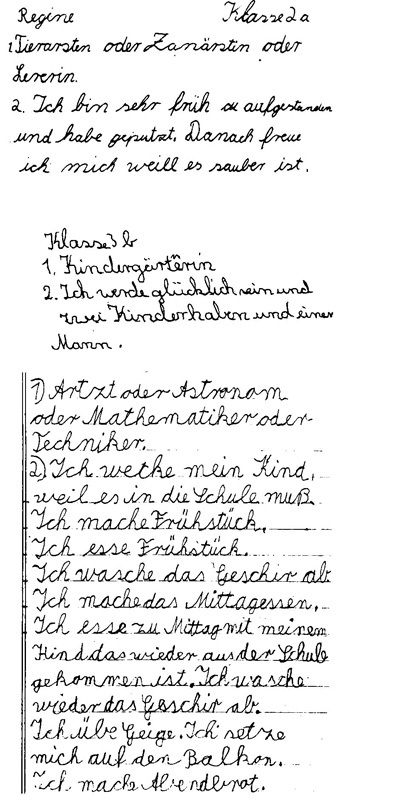 Regine Klasse 2a
1. Tierarsten oder Zanärstin oder
Lererin.
2. Ich bin sehr früh aufgestanden
und habe geputzt. Danach freue
ich mich weill es sauber ist.
Klasse 3b
1. Kindergärterin
2. Ich werde glücklich sein und
zwei Kinder haben und einen
Mann.
1) Artzt oder Astronom
oder Mathematiker oder
Techniker.
2) Ich wecke mein Kind,
weil es in die Schule muß.
Ich mache Frühstück.
Ich esse Frühstück.
Ich wasche das Geschir ab
Ich mache das Mittagessen.
Ich esse zu Mittag mit meinem
Kind das wieder aus der Schule
gekommen ist. Ich wasche
wieder das Geschir ab.
Ich übe Geige. Ich setze
mich auf den Balkon.
Ich mache Abendbrot.